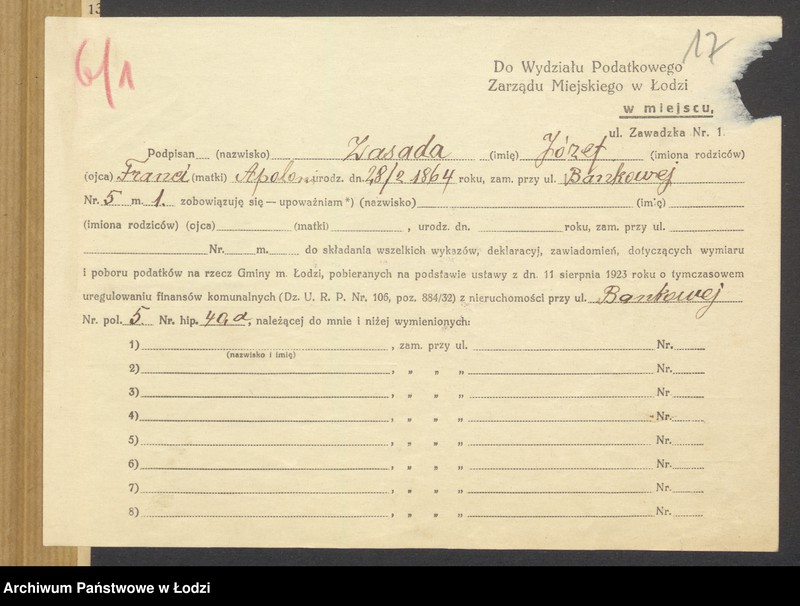 13
6/1
17
Do Wydziału Podatkowego
Zarządu Miejskiego w Łodzi
w miejscu,
ul. Zawadzka Nr. 1.
Podpisan (nazwisko) Zasada (imię) Józef (imiona rodziców)
(ojca) Franc (matki) Apolon urodz. dn. 28/2 1864 roku, zam. przy ul. Bankowej
Nr. 5 m. 1. zobowiązuję się — upoważniam *) (nazwisko) (imię)
(imiona rodziców) (ojca) (matki) , urodz. dn. roku, zam. przy ul.
Nr. m. do składania wszelkich wykazów, deklaracyj, zawiadomień, dotyczących wymiaru
i poboru podatków na rzecz Gminy m. Łodzi, pobieranych na podstawie ustawy z dn. 11 sierpnia 1923 roku o tymczasowem
uregulowaniu finansów komunalnych (Dz. U. R. P. Nr. 106, poz. 884/32) z nieruchomości przy ul. Bankowej
Nr. pol. 5 Nr. hip. 40a, należącej do mnie i niżej wymienionych:
1) , zam. przy ul. Nr.
(nazwisko i imię)
2) , „ „ „ Nr.
3) , „ „ „ Nr
4) , „ „ „ Nr.
5) , „ „ „ Nr.
6) , „ „ „ Nr.
7) , „ „ „ Nr.
8) , „ „ „ Nr.
Archiwum Państwowe w Łodzi